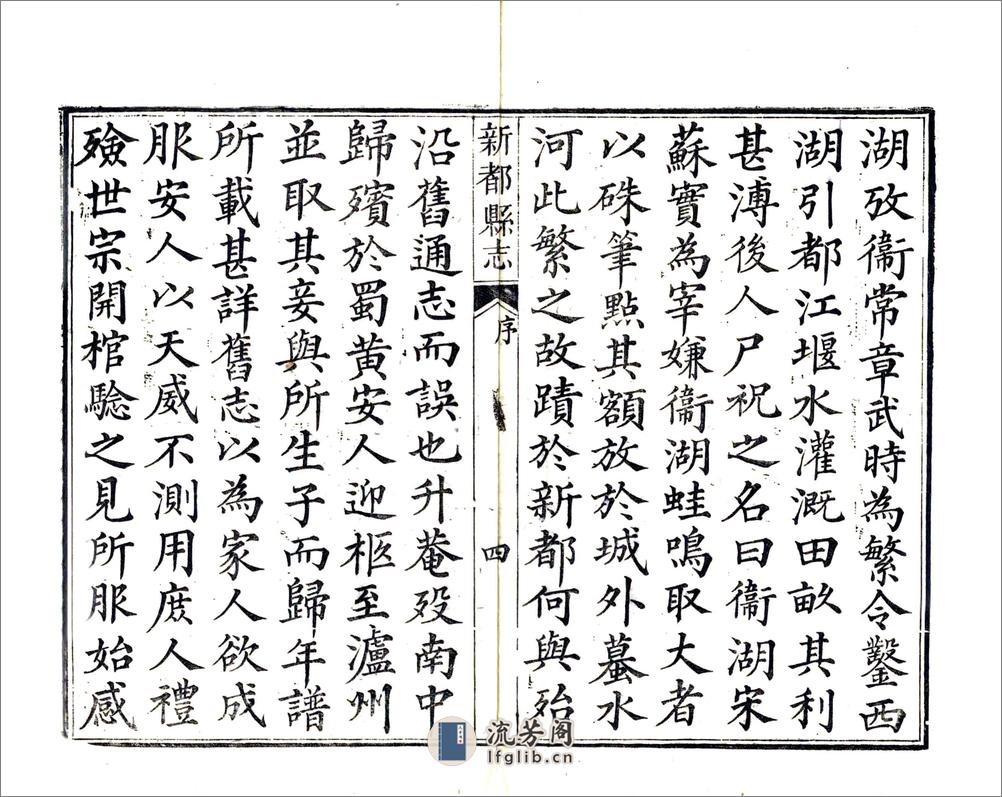 湖攷衞常章武時為繁令鑿西
湖引都江堰水灌溉田畝其利
甚溥後人尸祝之名曰衞湖宋
蘇實為宰嫌衞湖蛙鳴取大者
以硃筆點其額放於城外蟇水
河此繁之故蹟於新都何與殆
新都縣志
序
四
沿舊通志而誤也升菴歿南中
歸殯於蜀黃安人迎柩至瀘州
並取其妾與所生子而歸年譜
所載甚詳舊志以為家人欲成
服安人以天威不測用庶人禮
殮世宗開棺驗之見所服始感
流芳阁
lfglib.cn